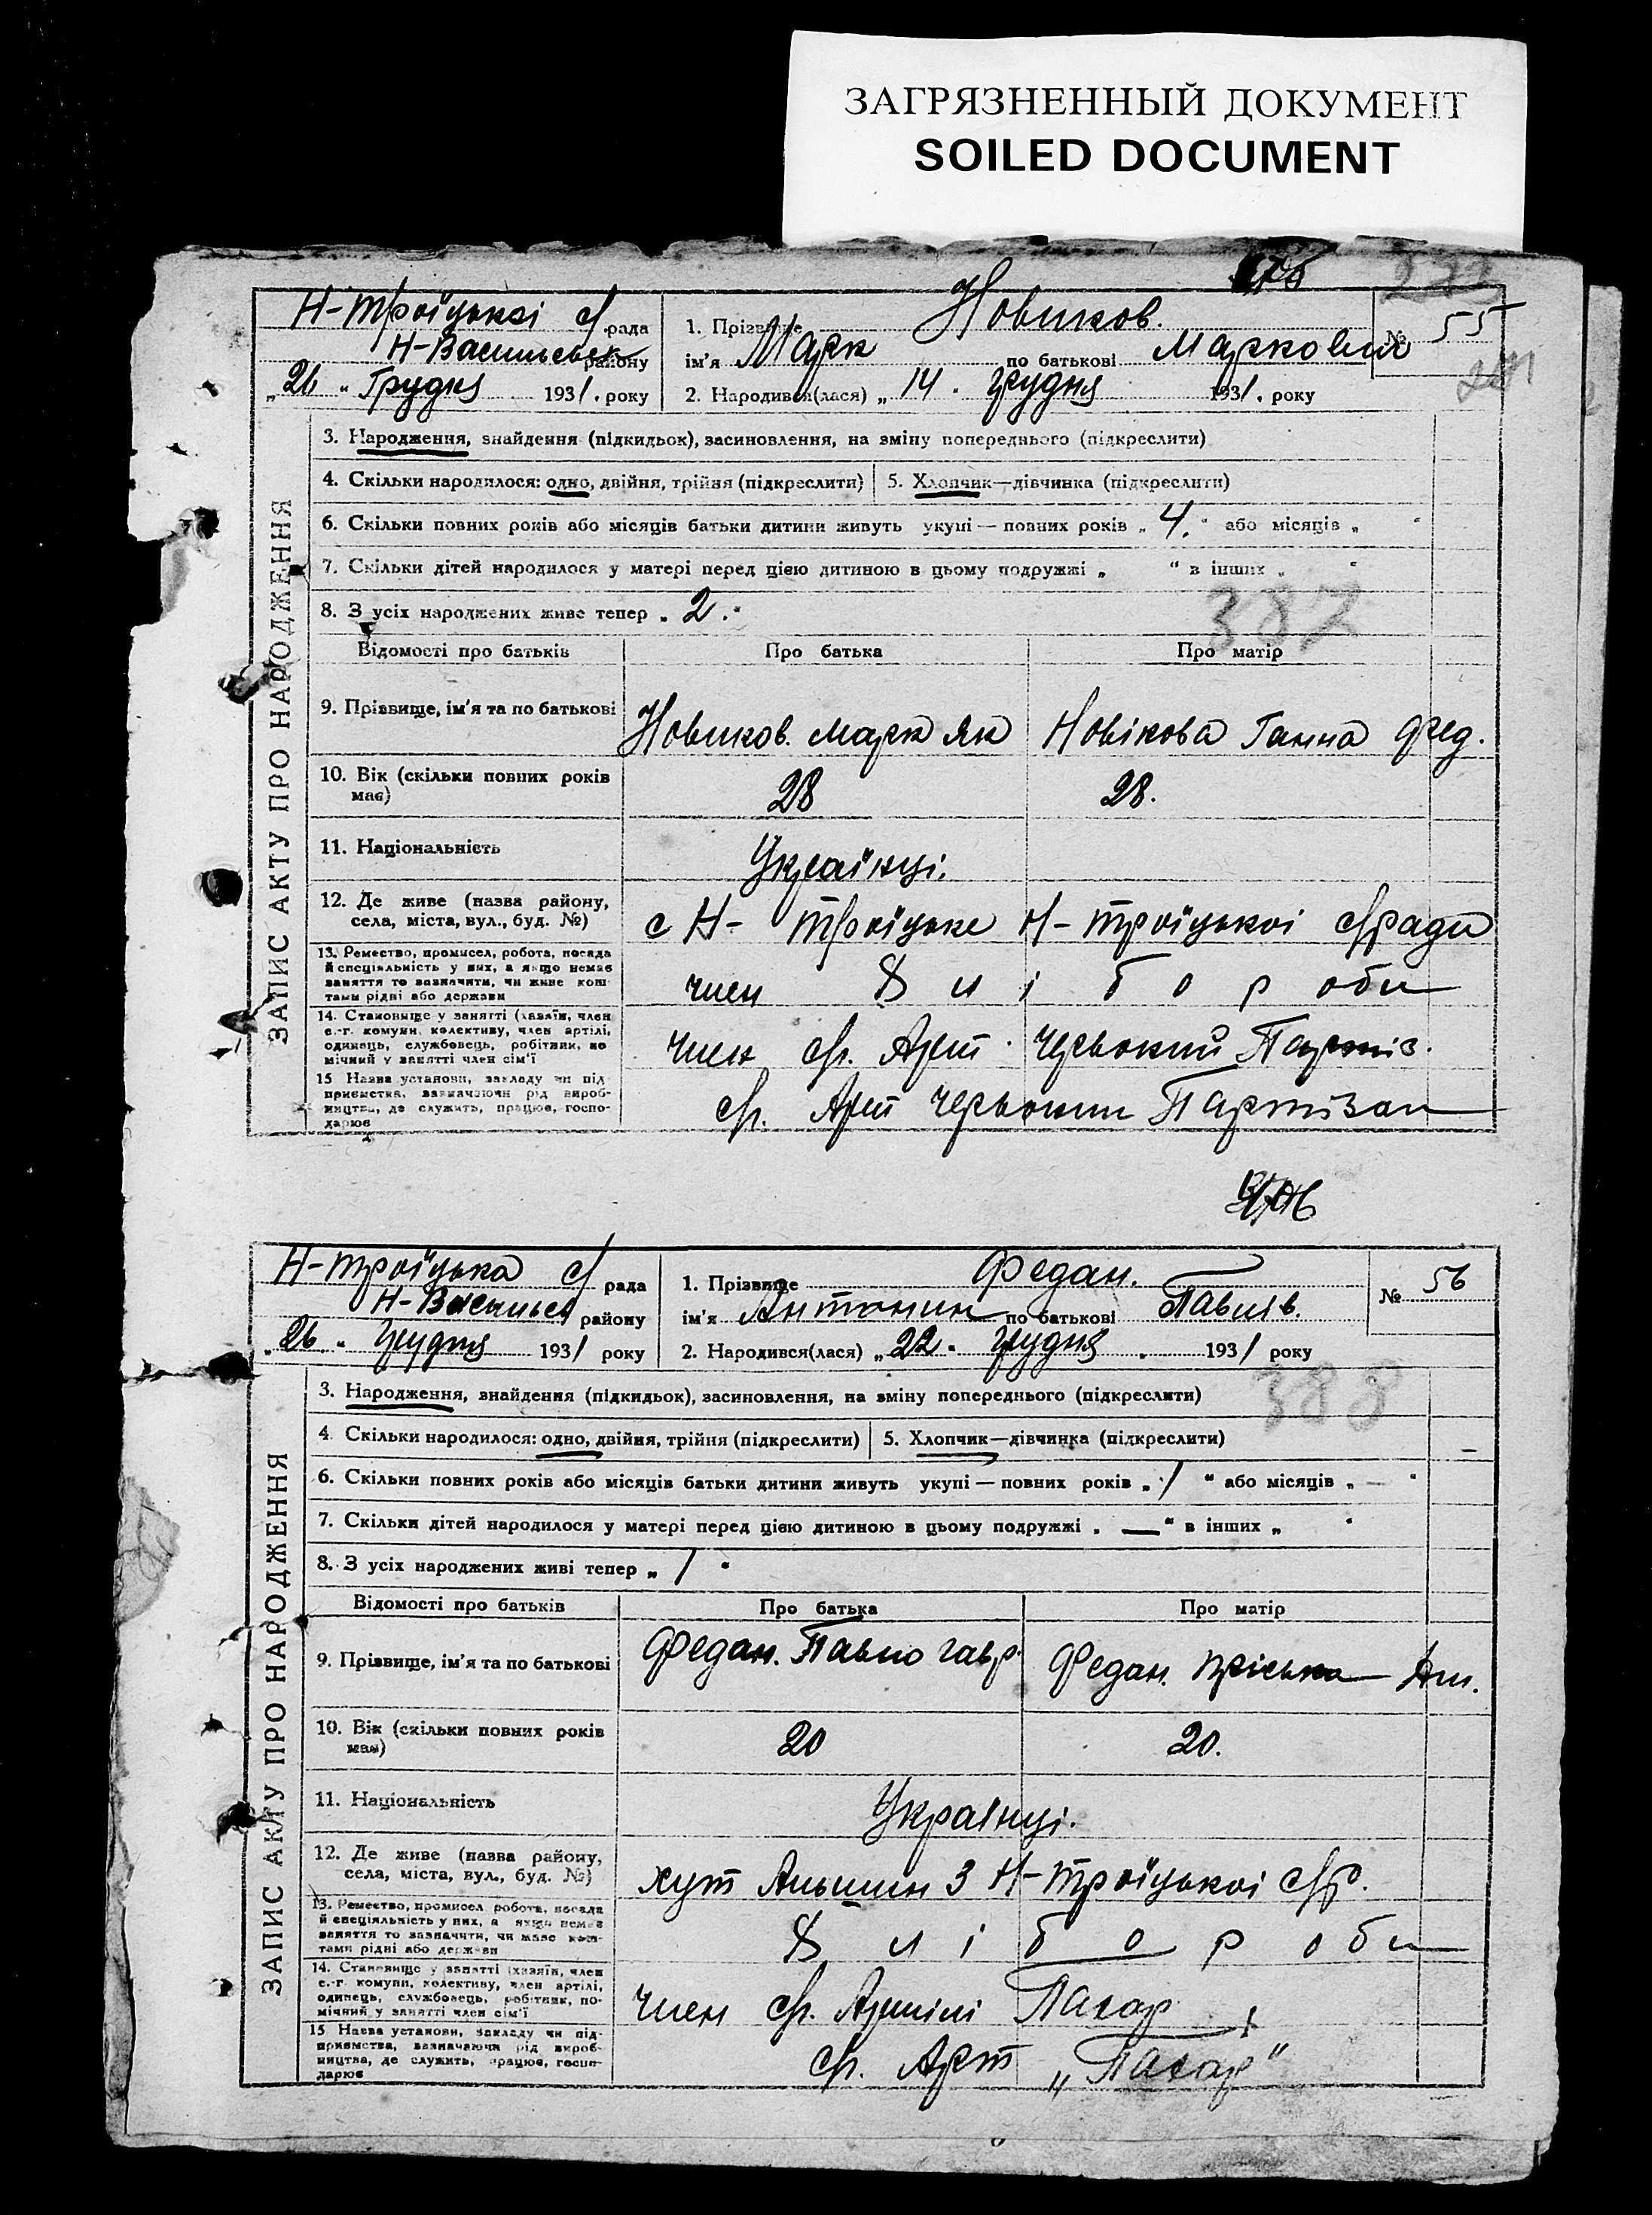 ЗАГРЯЗНЕННЫЙ ДОКУМЕНТ
SOILED DOCUMENT
Новиков.
Н-Троїцькоі с/рада
1. Прізвище
№ 55
Н-Васильевск району
ім'я Марк по батькові Маркович
„26“ Грудня 1931. року
2. Народився(лася) „14. грудня 1931. року
ЗАПИС АКТУ ПРО НАРОДЖЕННЯ
3. Народження, знайдення (підкидьок), засиновлення, на зміну попереднього (підкреслити)
4. Скільки народилося: одно, двійня, трійня (підкреслити) 5. Хлопчик—дівчинка (підкреслити)
6. Скільки повних років або місяців батьки дитини живуть укупі — повних років „4.“ або місяців „ “
7. Скільки дітей народилося у матері перед цією дитиною в цьому подружжі „ “ в інших „ “
8. З усіх народжених живе тепер „2.“
387
Відомості про батьків Про батька Про матір
9. Прізвище, ім'я та по батькові Новиков. Марк Як Новікова Ганна Фед.
10. Вік (скільки повних років має) 28 28.
11. Національність Українці.
12. Де живе (назва району, села, міста, вул., буд. №) с Н- Троїцьке Н-Троїцькоі с/ради
13. Ремество, промисел, робота, посада й спеціяльність у них, а якщо немає заняття то зазначити, чи живе коштами рідні або держави
член Хлібороби
14. Становище у занятті (хазяїн, член с.-г. комуни, колективу, член артілі, одинець, службовець, робітник, помічний у занятті член сім'ї
член с/г. Арт. Червоний Партіз.
15 Назва установи, закладу чи підприємства, зазначаючи рід виробництва, де служить, працює, господарює
с/г. Арт Червоний Партізан
Н-Троїцька с/рада
1. Прізвище Федан.
№ 56
Н-Васильев району
ім'я Антонин по батькові Павлів.
„26“ грудня 1931 року
2. Народився(лася) „22. грудня 1931 року
388
ЗАПИС АКТУ ПРО НАРОДЖЕННЯ
3. Народження, знайдення (підкидьок), засиновлення, на зміну попереднього (підкреслити)
4. Скільки народилося: одно, двійня, трійня (підкреслити) 5. Хлопчик—дівчинка (підкреслити)
6. Скільки повних років або місяців батьки дитини живуть укупі — повних років „1“ або місяців „—“
7. Скільки дітей народилося у матері перед цією дитиною в цьому подружжі „—“ в інших „ “
8. З усіх народжених живі тепер „1“
Відомості про батьків Про батька Про матір
9. Прізвище, ім'я та по батькові Федан. Павло Гавр. Федан. Пріська
10. Вік (скільки повних років має) 20 20.
11. Національність Українці.
12. Де живе (назва району, села, міста, вул., буд. №) хут 3 Н-Троїцькоі с/р.
13. Ремество, промисел робота, посада й спеціяльність у них, а якщо немає заняття то зазначити, чи живе коштами рідні або держави
Хлібороби
14. Становище у занятті (хазяїн, член с.-г. комуни, колективу, член артілі, одинець, службовець, робітник, помічний у занятті член сім'ї
член с/г. Артілі Пахар
15 Назва установи, закладу чи підприємства, зазначаючи рід виробництва, де служить, працює, господарює
с/г. Арт „Пахар“